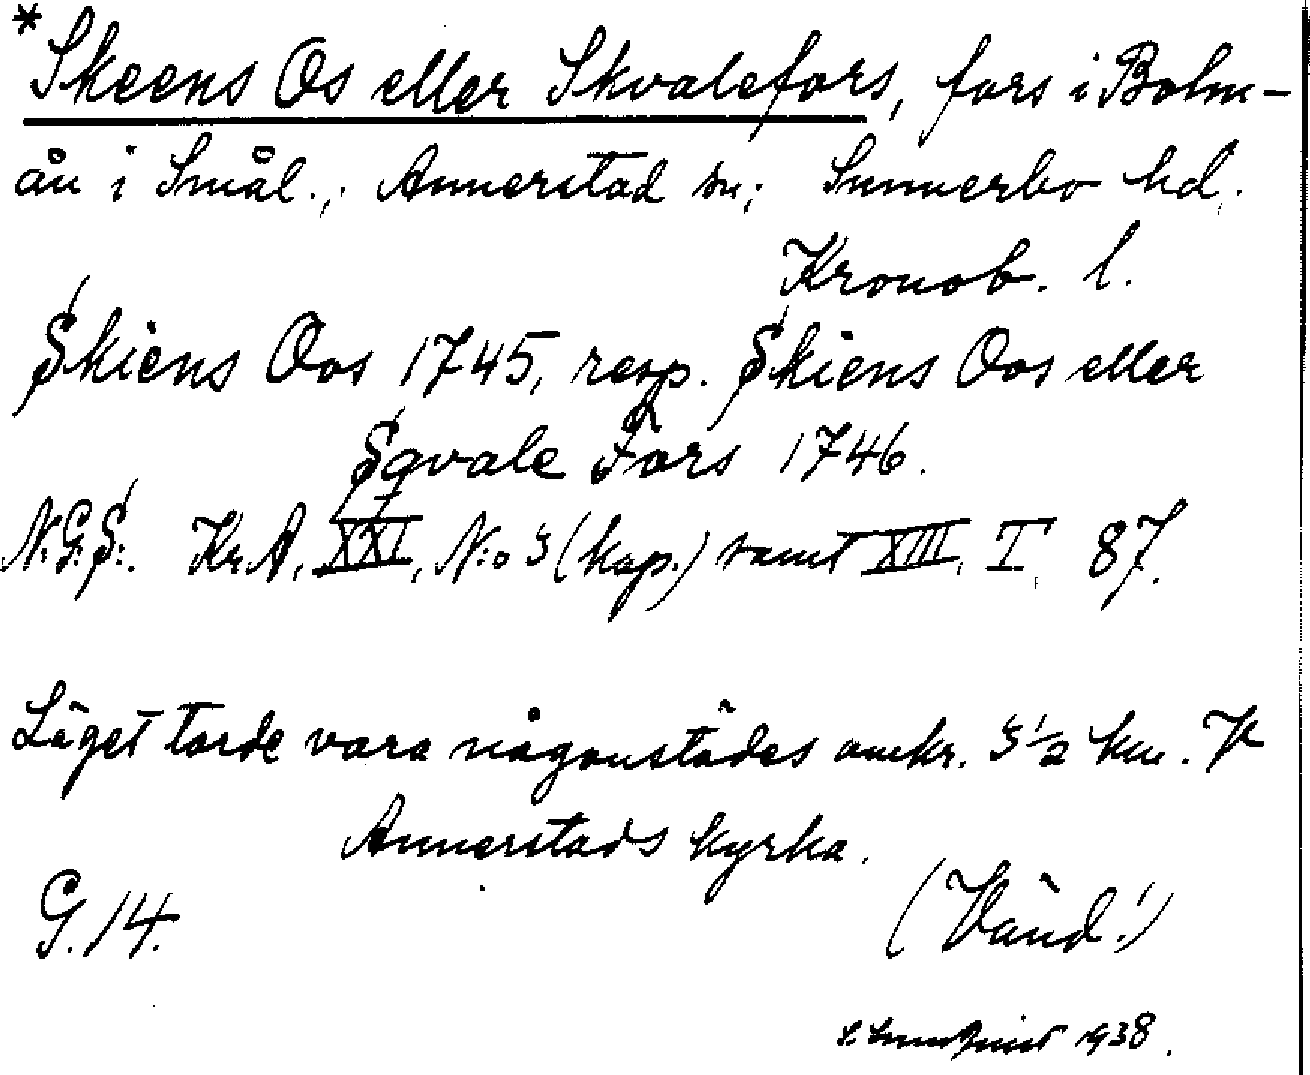 *Skeens Os eller Skvalefors, fors i Bolm-
ån i Smål., Annerstad sn; Sunnerbo hd.
Kronob. l.
Skiens Oos 1745, resp. Skiens Oos eller
Sqvale Fors 1746.
N:G:S:. Kr.A. XXI, N:o 3 (kap.) samt XIII, I, 87.
Läget torde vara någonstädes omkr. 3½ km. V
Annerstads kyrka.
G. 14. (Vänd!)
1938.